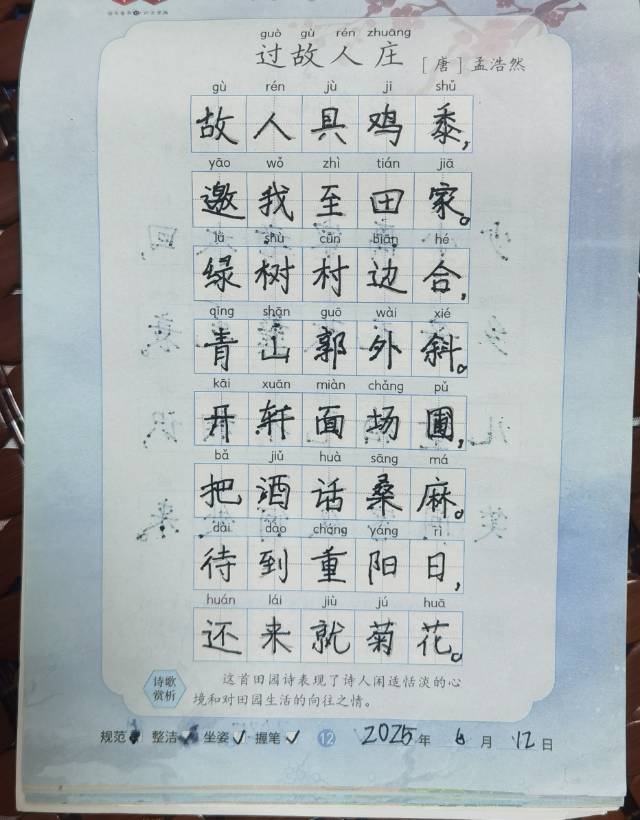 guò gù rén zhuāng
过故人庄 [唐]孟浩然
gù rén jù jī shǔ
故人具鸡黍,
yāo wǒ zhì tián jiā
邀我至田家。
lǜ shù cūn biān hé
绿树村边合,
qīng shān guō wài xié
青山郭外斜。
kāi xuān miàn chǎng pǔ
开轩面场圃,
bǎ jiǔ huà sāng má
把酒话桑麻。
dài dào chóng yáng rì
待到重阳日,
huán lái jiù jú huā
还来就菊花。
诗歌赏析
这首田园诗表现了诗人闲适恬淡的心
境和对田园生活的向往之情。
规范 整洁 坐姿✓ 握笔✓ 12 2025年6月12日